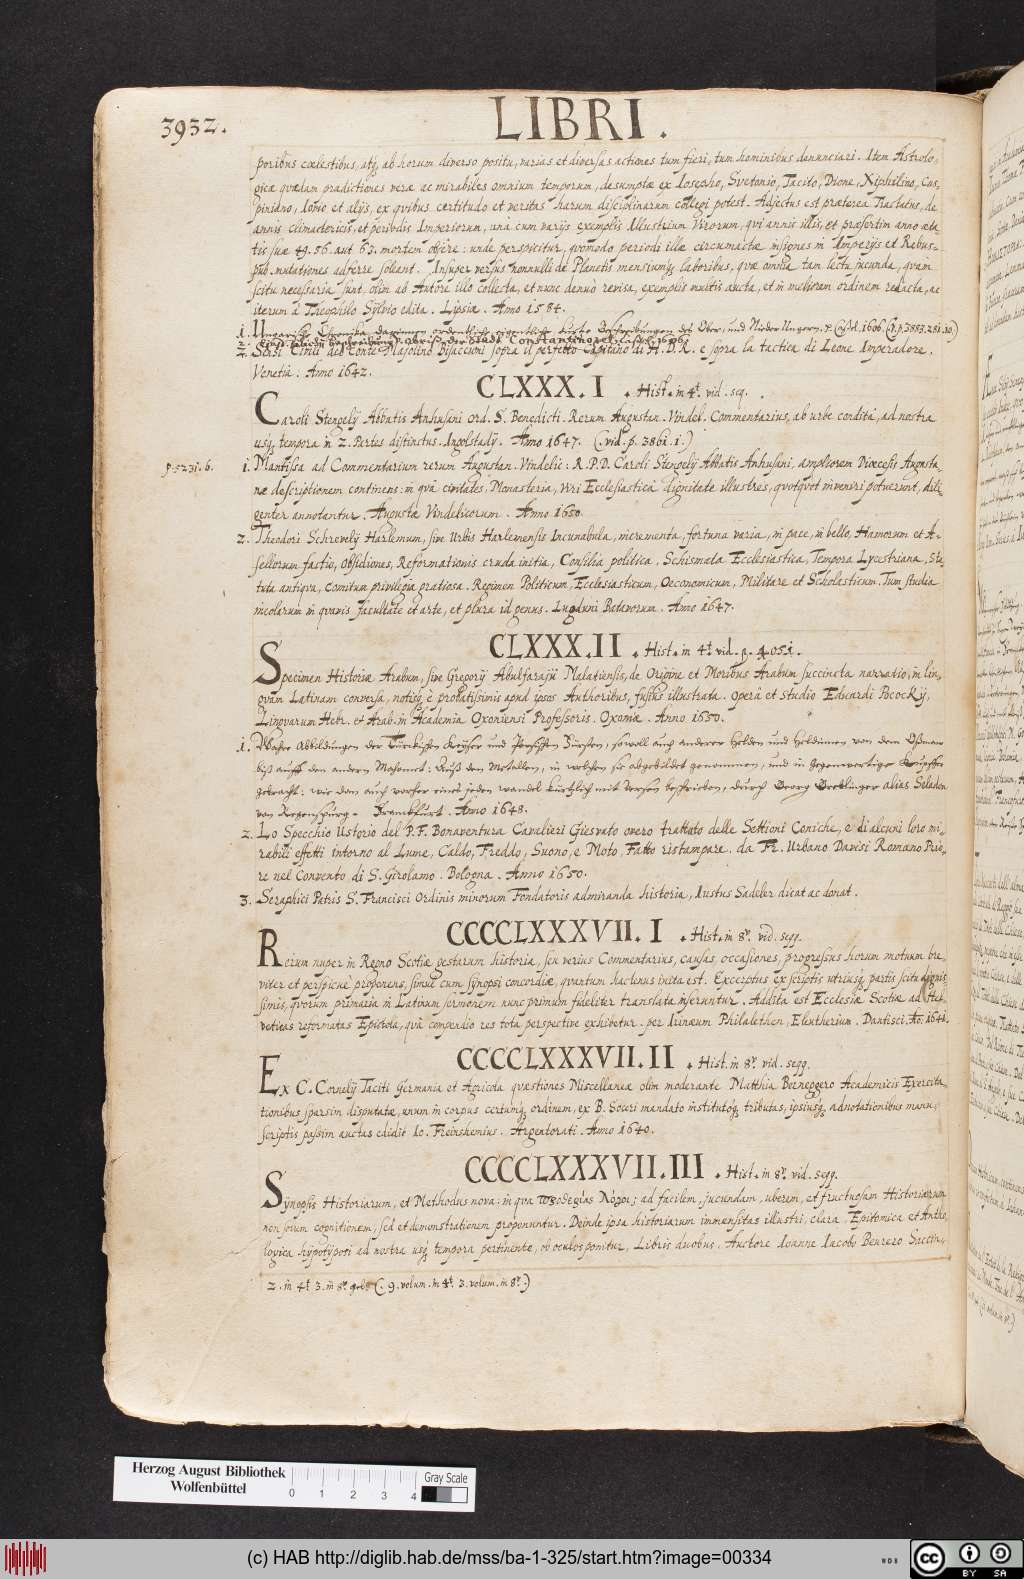 3932.
LIBRI.
poribus cœlestibus, atq; ab horum diverso positu, varias et diversas actiones tum fieri, tum hominibus denunciari. Item Astrolo-
gicæ quædam prædictiones veræ ac mirabiles omnium temporum, desumptæ ex Iosepho, Svetonio, Tacito, Dione, Xiphilino, Cus-
piniano, Iovio et alijs, ex quibus certitudo et veritas harum disciplinarum colligi potest. Adjectus est præterea Tractatus, de
annis climactericis, et periodis Imperiorum, unà cum varijs exemplis Illustrium Virorum, qui annis illis, et præsertim anno æta-
tis suæ 49. 56. aut 63. mortem obiere: unde perspicitur, quomodo periodi illæ circumactæ insignes in Imperijs et Rebus-
pub. mutationes adferre soleant. Insuper versus nonnulli de Planetis mensiumq; laboribus, quæ omnia tam lectu jucunda, quàm
scitu necessaria sunt, olim ab Autore illo collecta, et nunc denuò revisa, exemplis multis aucta, et in meliorem ordinem redacta, ac
iterum à Theophilo Sylvio edita. Lipsiæ. Anno 1584.
1. Ungarische Chronika darinnen ordentliche eigentliche kurtze Beschreibungen des Ober, und Nider Ungern. 1606.
Constantinopel
2. Sensi Civili del Conte Maiolino Bisaccioni sopra il perfetto Capitano di H.D.R. e sopra la tactica di Leone Imperadore.
Venetia. Anno 1642.
CLXXX. I . Hist. in 4t. vid. seq.
Caroli Stengelij Abbatis Anhusani Ord. S. Benedicti. Rerum Augustan. Vindel. Commentarius, ab urbe conditâ, ad nostra
usq; tempora in 2. Partes distinctus. Ingolstadij. Anno 1647. (. vid. p. 3861. 1.)
p. 5231. 6.
1. Mantissa ad Commentarium rerum Augustan. Vindelic: R.P.D. Caroli Stengelij Abbatis Anhusani, ampliorem Diœcesis Augusta-
næ descriptionem continens: in quâ civitates, Monasteria, viri Ecclesiasticâ dignitate illustres, quotquot inveniri potuerunt, dili-
genter annotantur. Augustæ Vindelicorum. Anno 1650.
2. Theodori Schrevelij Harlemum, sive Urbis Harlemensis Incunabula, incrementa, fortuna varia, in pace, in bello, Hamorum et A-
sellorum factio, Obsidiones, Reformationis cruda initia, Consilia politica, Schismata Ecclesiastica, Tempora Lycestriana, Sta-
tuta antiqva, Comitum privilegia gratiosa. Regimen Politicum, Ecclesiasticum, Oeconomicum, Militare et Scholasticum. Tum studia
incolarum in quavis facultate et arte, et plura id genus. Lugduni Batavorum. Anno 1647.
CLXXX. II . Hist. in 4t. vid. p. 4051.
Specimen Historiæ Arabum, sive Gregorij Abulfarajii Malatiensis, de Origine et Moribus Arabum succincta narratio, in lin-
gvam Latinam conversa, notisq; è probatissimis apud ipsos Authoribus, fusiùs illustrata. Operâ et studio Eduardi Pocockij,
Lingvarum Hebr. et Arab. in Academia Oxoniensi Professoris. Oxoniæ. Anno 1650.
1. Wahre Abbildungen der Türckischen Keyser und Persischen Fürsten, so wol auch anderer Helden und Heldinnen von dem Osman
biß auff den andern Mahomet: Auß den Metallen, in welchen sie abgebildet genommen, und in gegenwertige Kupffer
gebracht: wie dan auch vorher eines jeden wandel kürtzlich mit Versen beschrieben, durch Georg Greblinger alias Seladon
von Regenspurg. Franckfurt. Anno 1648.
2. Lo Specchio Ustorio del P.F. Bonaventura Cavalieri Giesvato overo trattato delle Settioni Coniche, e di alcuni loro mi-
rabili effetti intorno al Lume, Caldo, Freddo, Suono, e Moto, Fatto ristampare da Fr. Urbano Davisi Romano Prio-
re nel Convento di S. Girolamo. Bologna. Anno 1650.
3. Seraphici Patris S. Francisci Ordinis minorum Fondatoris admiranda historia, Iustus Sadeler dicat ac donat.
CCCCLXXXVII. I . Hist. in 8o. vid. seqq.
Rerum nuper in Regno Scotiæ gestarum historia, seu verius Commentarius, causas, occasiones, progressus horum motuum bre-
viter et perspicuè proponens, simul cum synopsi concordiæ, quantum hactenus inita est. Excerptus ex scriptis utriusq; partis scitu dignis-
simis, quorum primaria in Latinum sermonem nunc primùm fideliter translata inseruntur. Addita est Ecclesiæ Scotiæ ad Hel-
veticas reformatas Epistola, quâ compendio res tota perspective exhibetur. per Irinæum Philalethen, Eleutherium. Dantisci. Ao. 1641.
CCCCLXXXVII. II . Hist. in 8o. vid. seqq.
Ex C. Cornelij Taciti Germania et Agricola quæstiones Miscellaneæ olim moderante Matthia Berneggero Academicis Exercita-
tionibus sparsim disputatæ, unum in corpus certumq; ordinem, ex B. Soceri mandato institutoq; tributas, ipsiusq; adnotationibus manu-
scriptis passim auctas edidit Io. Freinshemius. Argentorati. Anno 1640.
CCCCLXXXVII. III . Hist. in 8o. vid. seqq.
Synopsis Historiarum, et Methodus nova: in qua
ad facilem, jucundam, uberem, et fructuosam Historiarum
non solum cognitionem, sed et demonstrationem proponuntur. Deinde ipsa historiarum immensitas illustri, clara, Epitomica et Antho-
logica hypotyposi ad nostra usq; tempora pertinente, ob oculos ponitur, Libris duobus. Auctore Ioanne Iacobo Beurero
2. in 4t. 3. in 8o. (. 9. volum. in 4t. 3. volum. in 8o.)
Herzog August Bibliothek
Wolfenbüttel
0 1 2 3 4
Gray Scale
(c) HAB http://diglib.hab.de/mss/ba-1-325/start.htm?image=00334
WDB
cc BY SA